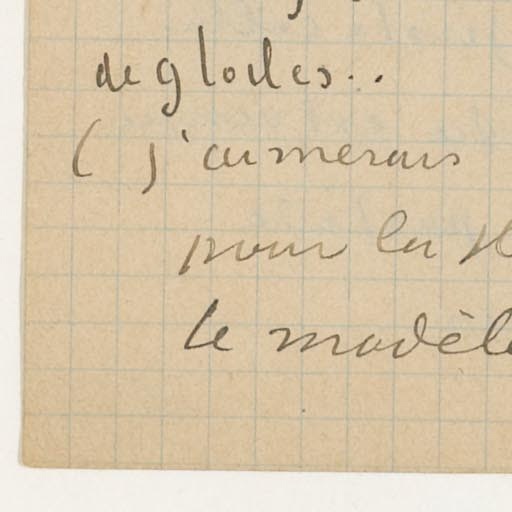 de gloiles..
( j'aimerais
pour la
le modèle